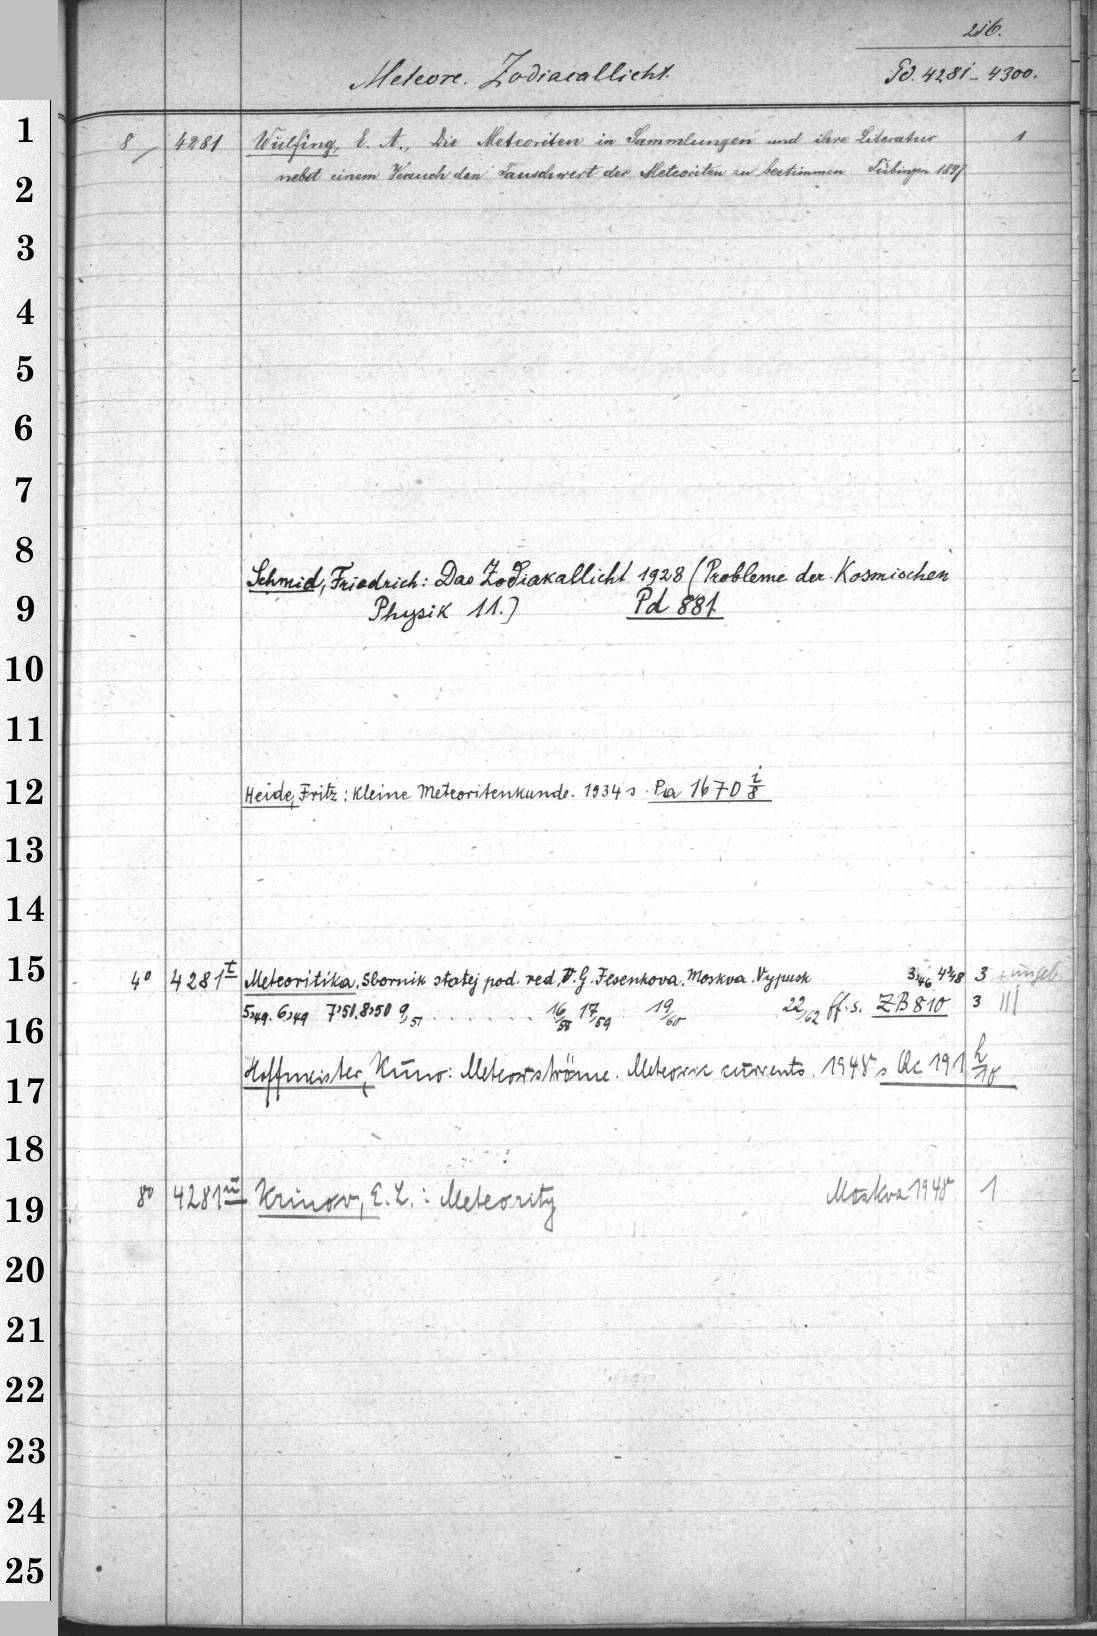 216.
Meteore. Zodiacallicht. Pd. 4281 - 4300.
1 8 4281 Wülfing, E. A., Die Meteoriten in Sammlungen und ihre Literatur 1
2 nebst einem Versuch den Tauschwert der Meteoriten zu bestimmen Tübingen 1897
3
4
5
6
7
8
Schmid, Friedrich: Das Zodiakallicht 1928 (Probleme der Kosmischen
9 Physik 11.) Pd 881
10
11
12 Heide, Fritz: Kleine Meteoritenkunde. 1934 s. Pa 1670 i/8
13
14
15 4° 4281 t Meteoritika. Sbornik statej pod. red. V. G. Fesenkova. Moskva. Vypusk 3,46 4,48 3 ungeb.
16 5,49. 6,49 7,50. 8,50 9,51 . . . . . . . 16/58 17/59 19/60 22/62 ff. s. ZB 810 3 |||
17 Hoffmeister, Kuno: Meteorströme. Meteoric currents. 1948 s Qc 191 h/10
18
19 8° 4281 u Krinov, E. L.: Meteority Moskva 1948 1
20
21
22
23
24
25